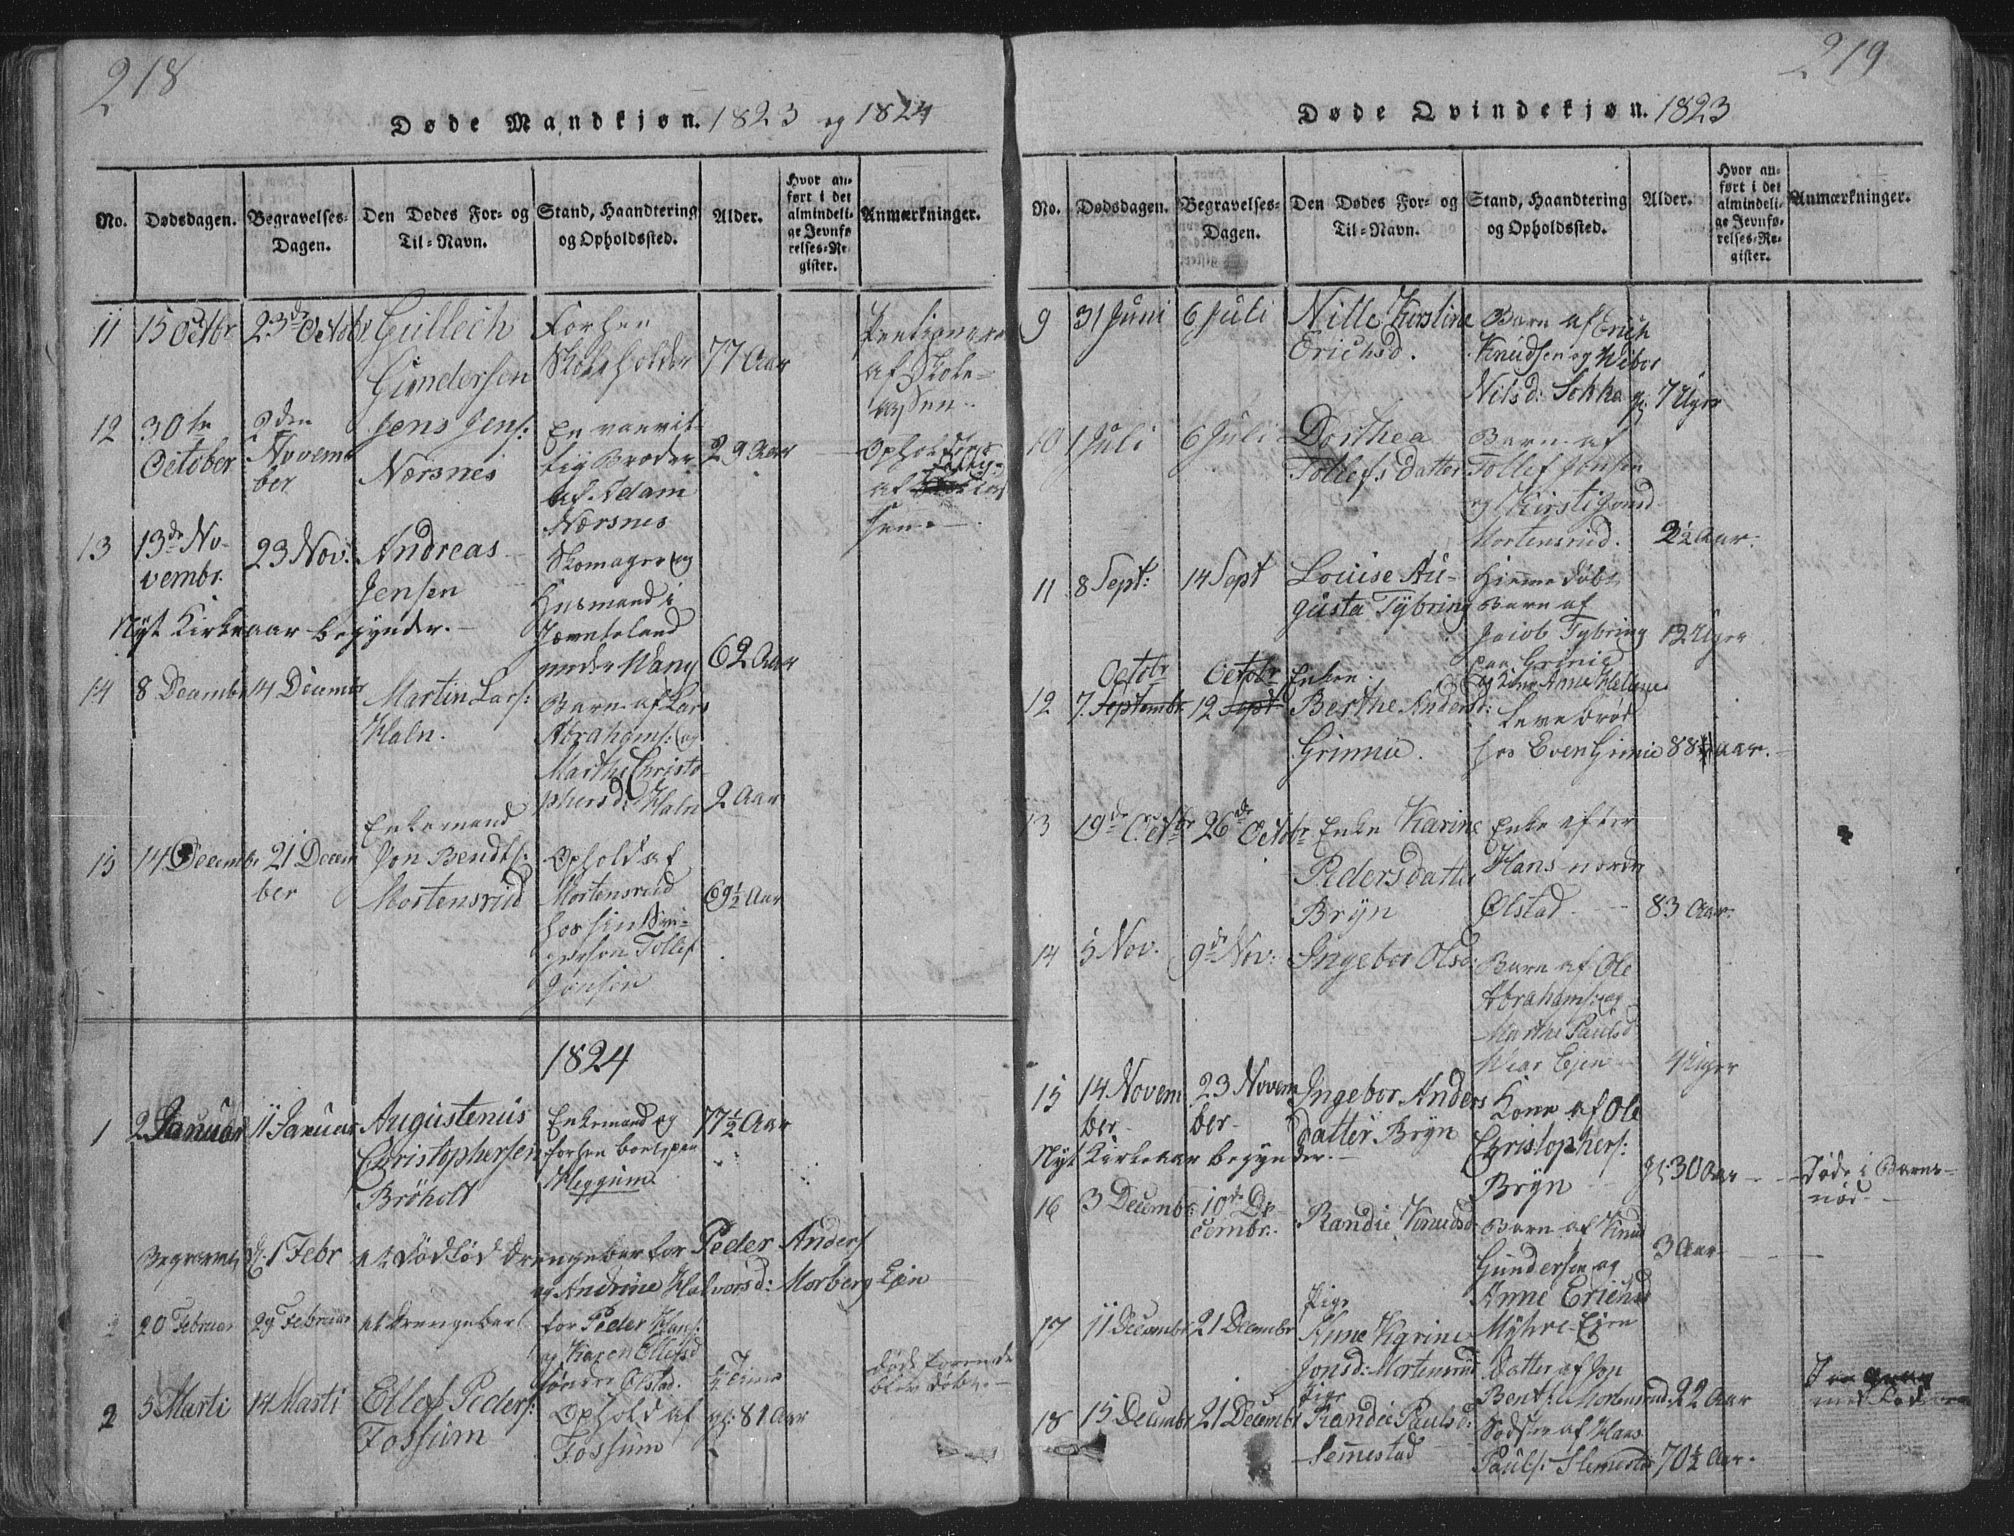 218
Døde Mandkjøn. 1823 og 1824
No. Dødsdagen. Begravelses-Dagen. Den Dødes For- og Til-Navn. Stand, Haandtering og Opholdssted. Alder. Hvor anført i det almindelige Jevnførelses-Register. Anmærkninger.
11 15 Octbr 23de Octobr Gullech
Gundersen
Forhen
Skoleholder
77 Aar
Pensioneret
af Skole-
cassen.
12 30te
October
2den
Novem
ber
Jens Jens:
Nærsnes
En vanvit
tig Broder
af Adam
Nærsnes
29 Aar
Opholdtes
af Fattig-
cas
sen.
13 13de No-
vembr.
23 Nov:
Andreas
Jensen
Skomager og
Huusmand i
Jærnteland
nedre Wang
62 Aar
Nyt Kirkeaar begynder.
14 8 Decembr 14 Decembr
Martin Lars:
Haln.
Barn af Lars
Abrahams: og
Marthe Christo
phersd: Haln
2 Aar
15 14 Decembr 21 Decem
ber
Enkemand
Jon Bendts:
Mortensrud
Ophold af
Mortensrud
hos sin Svi-
gersøn Tollef
Jonsen
69½ Aar
1824
1 2 Januar 11 Januar
Augustenus
Christophersen
Brøholt
Enkemand og
forhen boe
Heggum
77½ Aar
Begravet 1 Febr et dødfød Drengebarn for Peder Anders
og Andrine Halvorsd: Morberg Eje
20 Februar 29 Februar et Drengebarn
for Peder Hans:
og Karen Ellefsd
søndre Ølstad.
½ Time
død førend det
blev døbt.
2 5 Marti 14 Marti
Ellef Peders:
Fossum
Ophold af
Fossum
gl: 81 Aar
219
Døde Qvindekjøn. 1823
No. Dødsdagen. Begravelses-Dagen. Den Dødes For- og Til-Navn. Stand, Haandtering og Opholdssted. Alder. Hvor anført i det almindelige Jevnførelses-Register. Anmærkninger.
9 31 Juni 6 Juli
Nille Kirstine
Erichsd.
Barn af Erich
Knudsen og Wibor
Nilsd: Sekke
gl. 7 Uger
10 1 Juli 6 Juli
Dorthea
Tollefs Datter
Barn af
Tollef Jonsen
og Kirsti Jonsd
Mortensrud.
2½ Aar.
11 8 Sept: 14 Sept
Louise Au-
gusta Tybring
Hiemmedøbt
Barn af
Jacob Tybring
paa Grimie
og Anne Helene
12 Uger
12 7 Septembr. Octobr 12 Sept Octobr
Enken
Berthe Andersd:
Grimie.
Levebrød
hos Even Grimie
88 Aar.
13 19de Octbr 26de Octobr
Enke Karine
Pedersdatter
Bryn
Enke efter
Hans nordre
Ølstad
83 Aar.
14 5 Nov. 9de Nov:
Ingebor Olsd:
Barn af Ole
Abrahams: og
Marthe Paulsd
Hear Ejen
4 Uger
15 14 Novem
ber
23 Novem
ber
Ingebor Anders
datter Bryn
Kone af Ole
Christophers:
Bryn
gl: 30 Aar
Døde i Barns-
nød
Nyt Kirkeaar begynder.
16 3 Decembr: 10de De-
cembr.
Randie Knudsd
Barn af Knud
Gundersen og
Anne Erichsd
Myhre-Ejen
3 Aar
17 11 Decembr 21 Decembr
Pige
Anne Karine
Jonsd: Mortensrud
Datter af Jon
Bents: Mortensrud.
22 Aar
18 15 Decembr 21 Decembr
Pige
Randie Paulsd:
Semmestad
Søster af Hans
Pauls: Slemestad
70½ Aar.